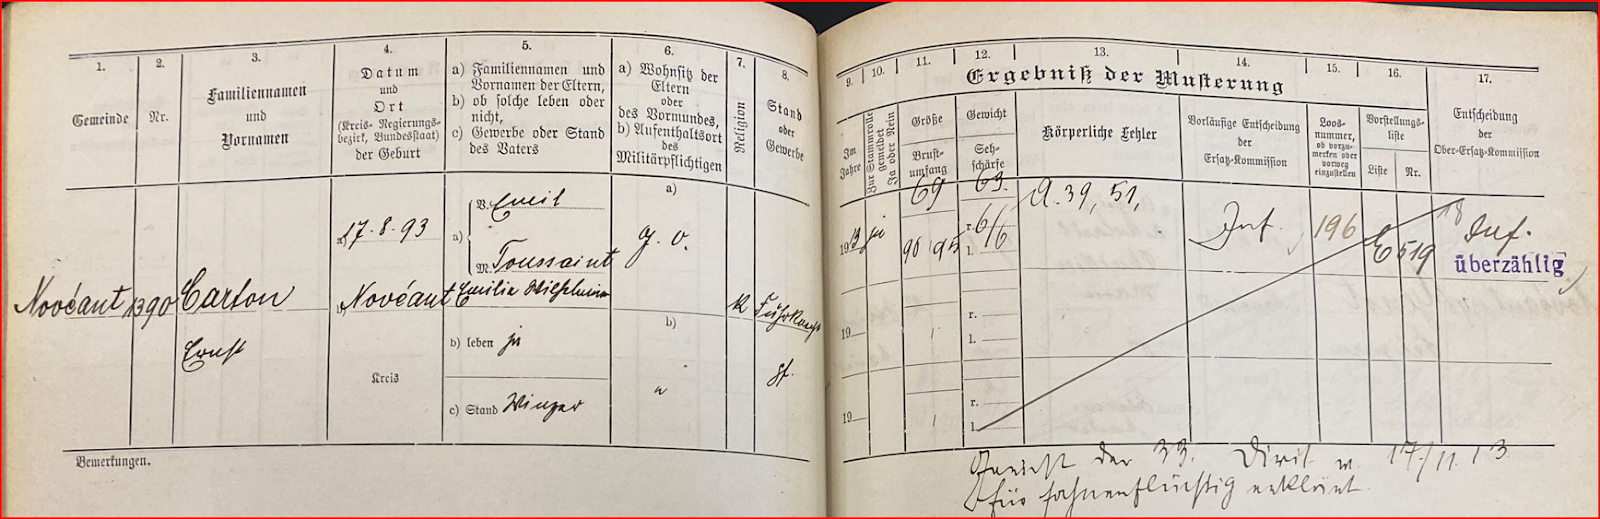 1.
Gemeinde
2.
Nr.
3.
Familiennamen
und
Vornamen
4.
Datum
und
Ort
(Kreis- Regierungs-
bezirk, Bundesstaat)
der Geburt
5.
a) Familiennamen und
Vornamen der Eltern,
b) ob solche leben oder
nicht,
c) Gewerbe oder Stand
des Vaters
6.
a) Wohnsitz der
Eltern
oder
des Vormundes,
b) Aufenthaltsort
des
Militärpflichtigen
7.
Religion
8.
Stand
oder
Gewerbe
9.
Im
Jahre
10.
Zur Stammrolle
gemeldet
Ja oder Nein
Ergebniß der Musterung
11.
Größe
Brust-
umfang
12.
Gewicht
Seh-
schärfe
13.
Körperliche Fehler
14.
Vorläufige Entscheidung
der
Ersatz-Kommission
15.
Loos-
nummer,
ob vorzu-
merken oder
vorweg
einzustellen
16.
Vorstellungs-
liste
Liste
Nr.
17.
Entscheidung
der
Ober-Ersatz-Kommission
Novéant
1390
Carton
Ernst
a) 17. 8. 93
b) Novéant
Kreis
a)
V. Emil
M. Toussaint
Emilia Wilhelmina
b) leben ja
c) Stand Winzer
a)
g. o.
b)
"
K
Fuhrknecht
1913
ja
69
90 95
63.
r. 6/6
l.
A. 39, 51,
Inf.
196
E
519
18
Inf.
überzählig
19
r.
l.
19
r.
l.
Bemerkungen.
Gericht der 33. Divis. v. 17/11 13
für fahnenflüchtig erklärt.